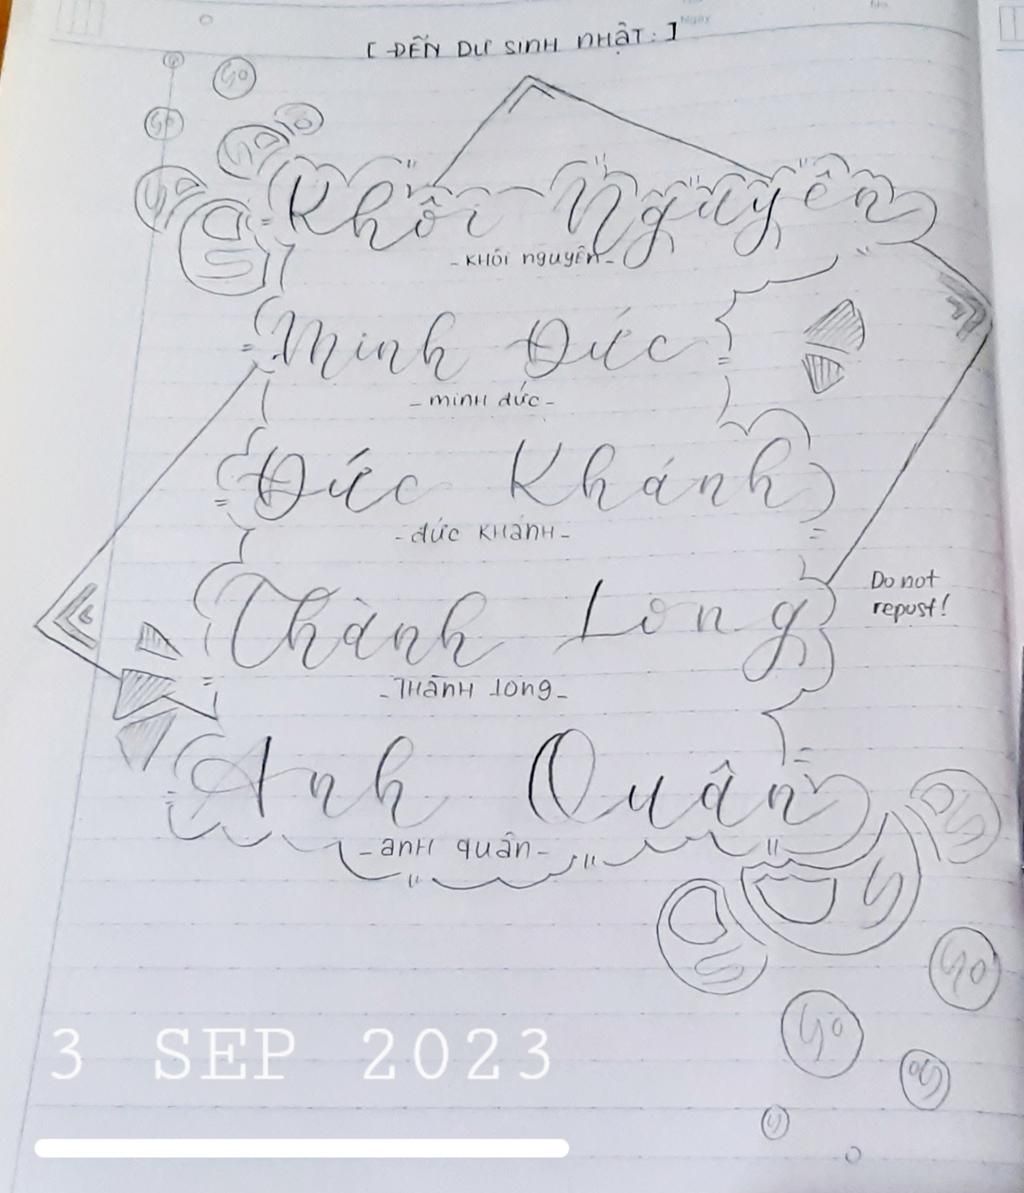 [ ĐẾN DỰ SINH NHẬT: ]
Khôi Nguyên
- KHÔI nguyên -
Minh Đức
- minH đức -
Đức Khánh
- đức KHánH -
Thành Long
Do not
repost!
- THànH Long -
Anh Quân
- anH quân -
3 SEP 2023